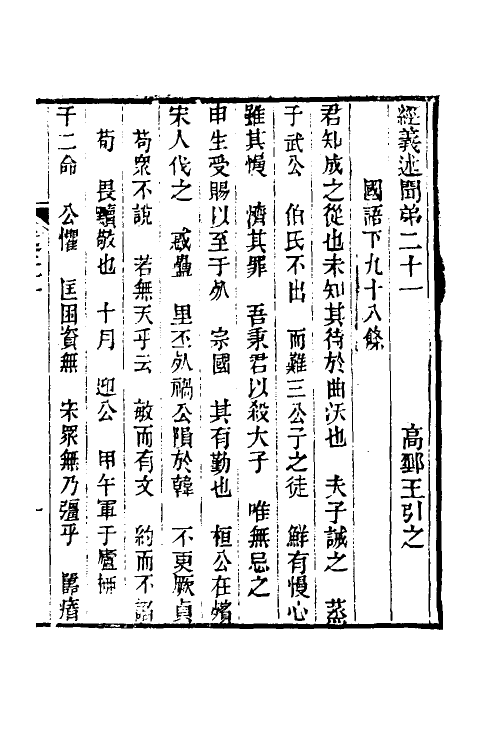 經義述聞弟二十一
高郵王引之
國語下九十八條
君知成之從也未知其待於曲沃也 夫子誠之 烝
于武公 伯氏不出 而難三公子之徒 鮮有慢心
雖其慢 濟其罪 吾秉君以殺大子 唯無忌之
申生受賜以至于𣦸 宗國 其有勤也 桓公在殯
宋人伐之 惑蠱 里丕𣦸禍公隕於韓 不更厥貞
苟眾不說 若無天乎云 敏而有文 約而不諂
苟 畏黷敬也 十月 迎公 甲午軍于廬柳
子二命 公懼 匡困資無 宋眾無乃彊乎 瘖